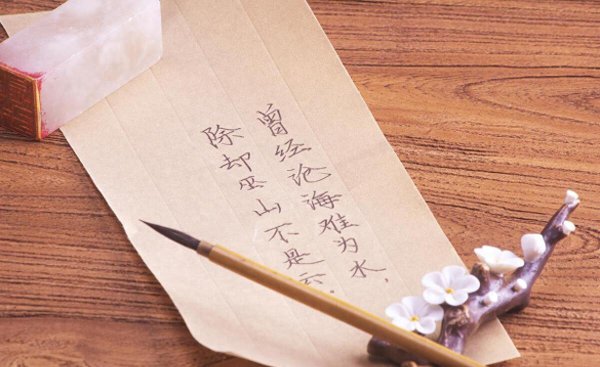 曾经沧海难为水，
除却巫山不是云，